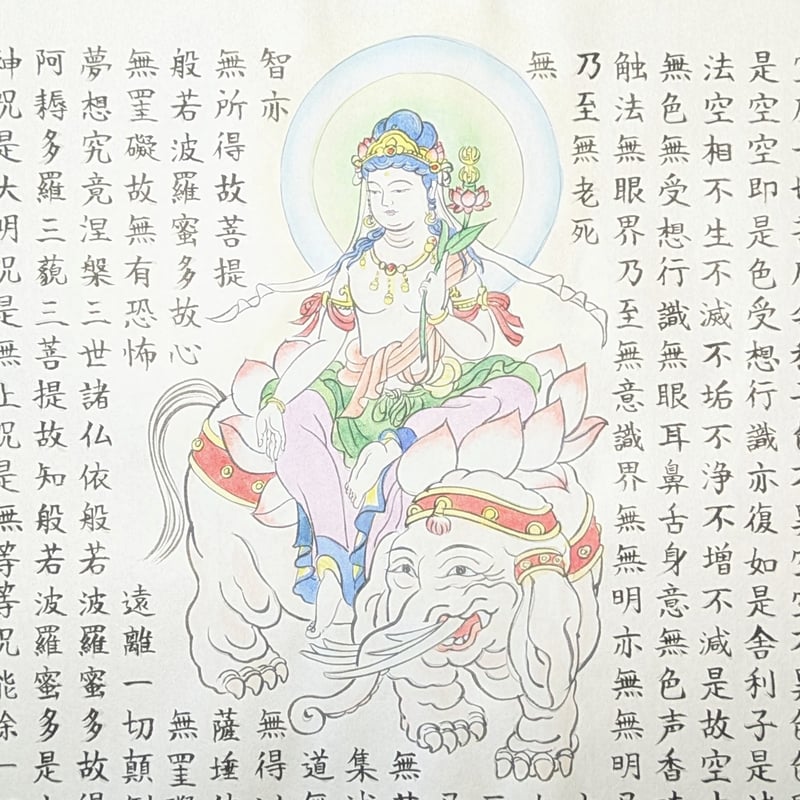 是空空即是色受想行識亦復如是舎利子是
法空相不生不滅不垢不浄不増不減是故空
無色無受想行識無眼耳鼻舌身意無色声香
触法無眼界乃至無意識界無無明亦無無明
乃至無老死
無
無
集
道
智亦
無得
無所得故菩提
薩埵
般若波羅蜜多故心
無罣
無罣礙故無有恐怖
遠離一切顛
夢想究竟涅槃三世諸仏依般若波羅蜜多故得
阿耨多羅三藐三菩提故知般若波羅蜜多是
神咒是大明咒是無上咒是無等等咒能除一